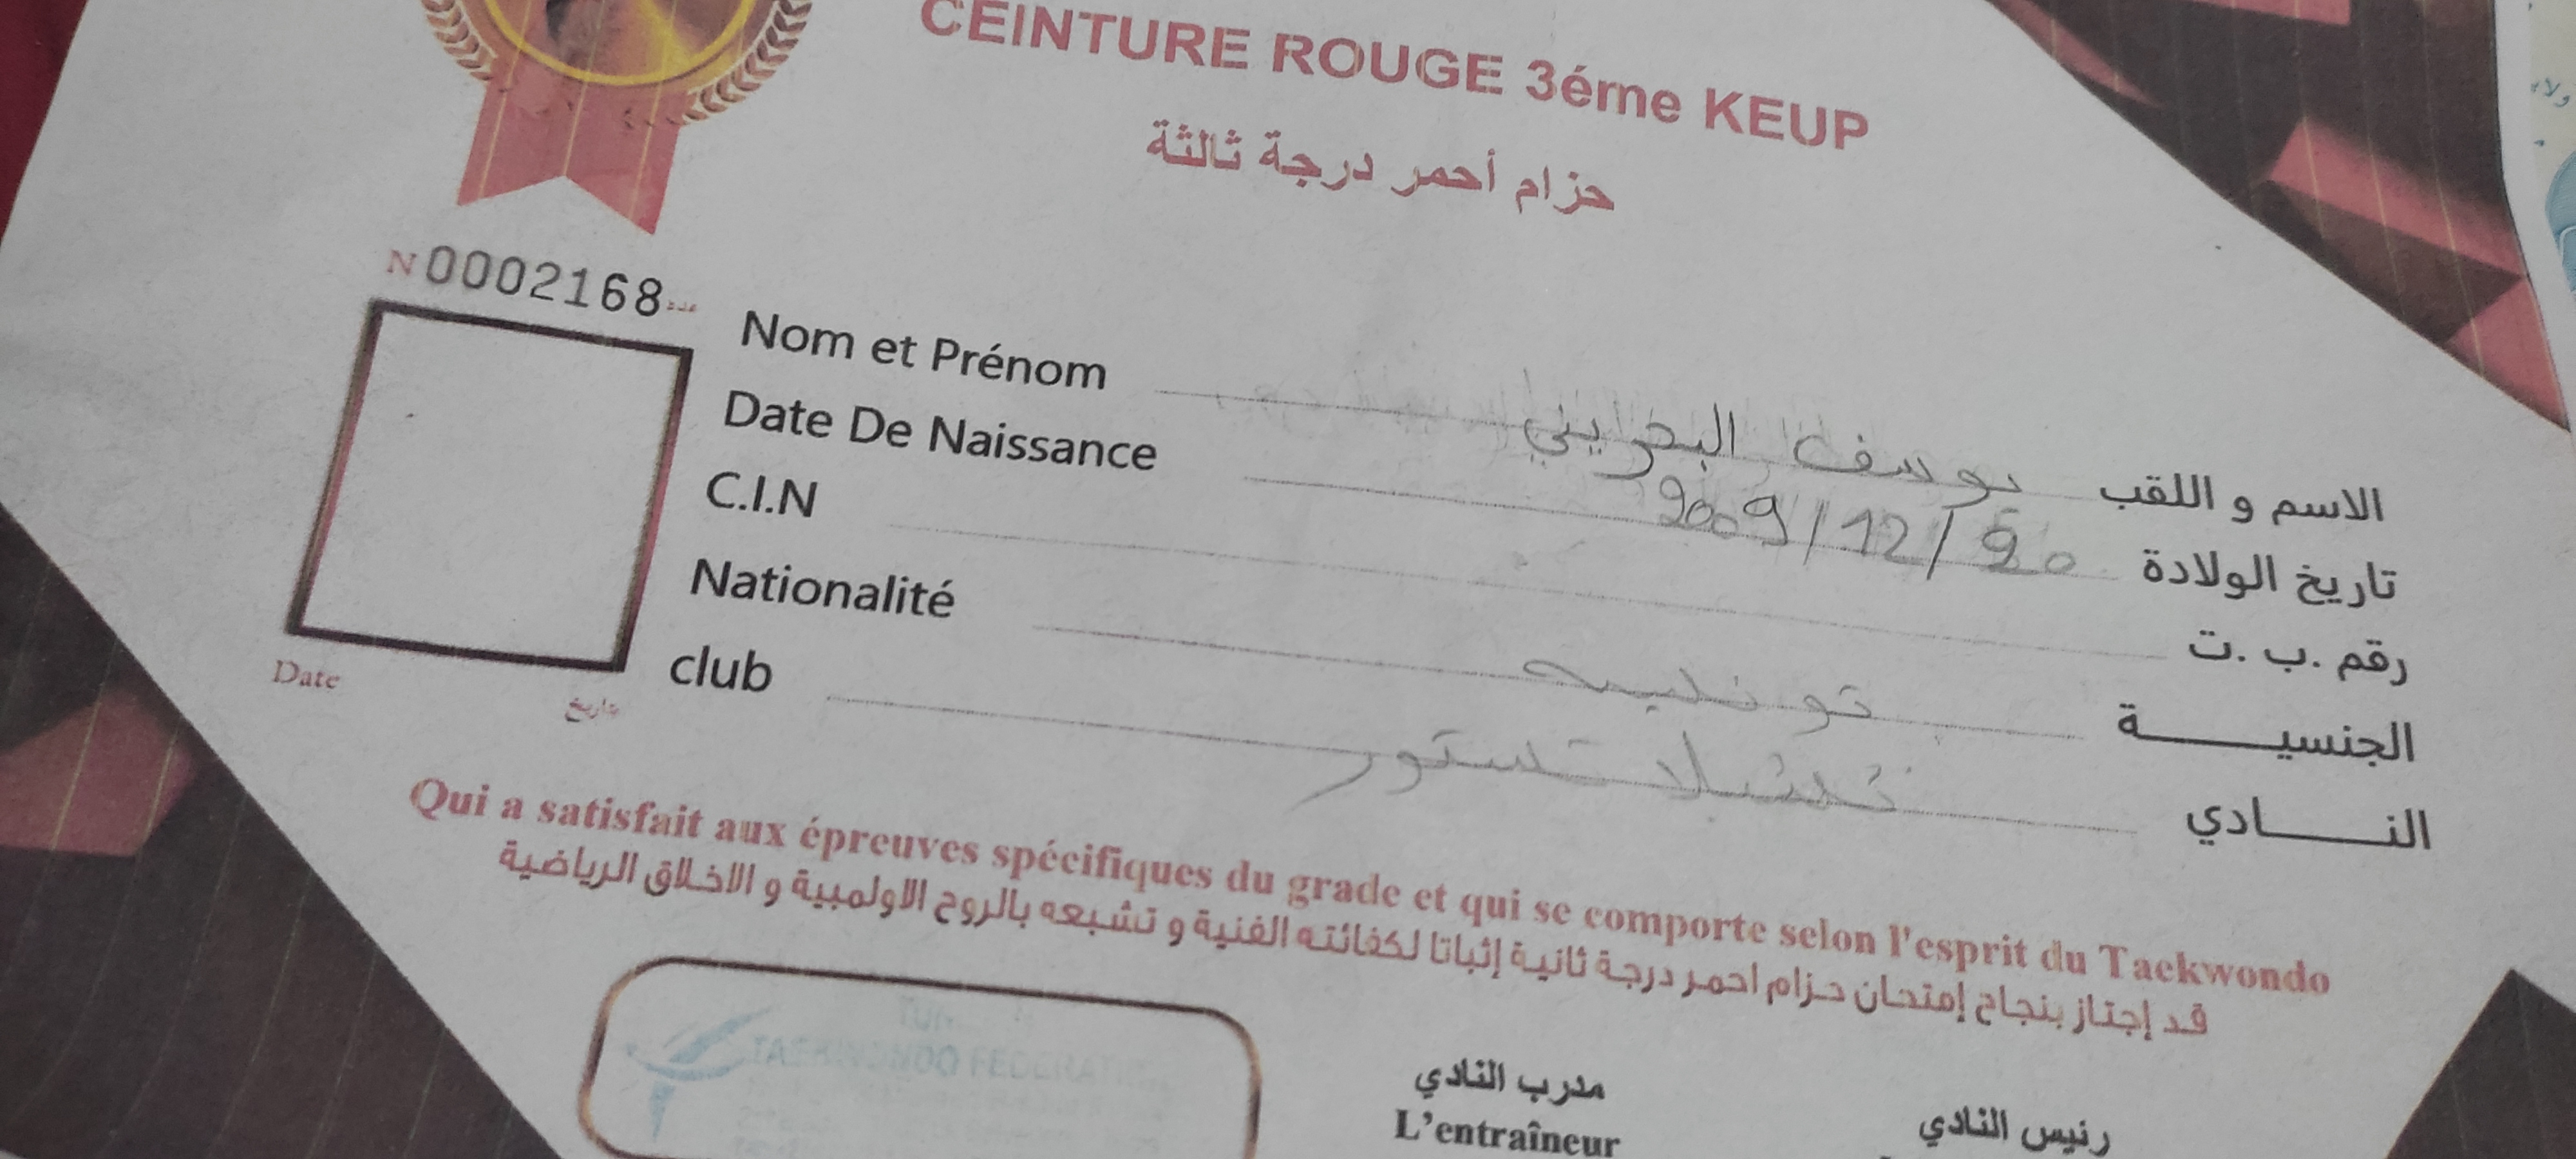 CEINTURE ROUGE 3éme KEUP
حزام أحمر درجة ثالثة
N 0002168 عدد
Nom et Prénom يوسف البحريني الاسم و اللقب
Date De Naissance 2009/12/20 تاريخ الولادة
C.I.N رقم .ب .ت
Nationalité تونسية الجنسيـــــة
club تستور النـــــادي
Date تاريخ
Qui a satisfait aux épreuves spécifiques du grade et qui se comporte selon l'esprit du Taekwondo
قد إجتاز بنجاح إمتحان حزام احمر درجة ثانية إثباتا لكفائته الفنية و تشبعه بالروح الاولمبية و الاخلاق الرياضية
TAEKWONDO FEDERATION
مدرب النادي
رئيس النادي
L'entraîneur